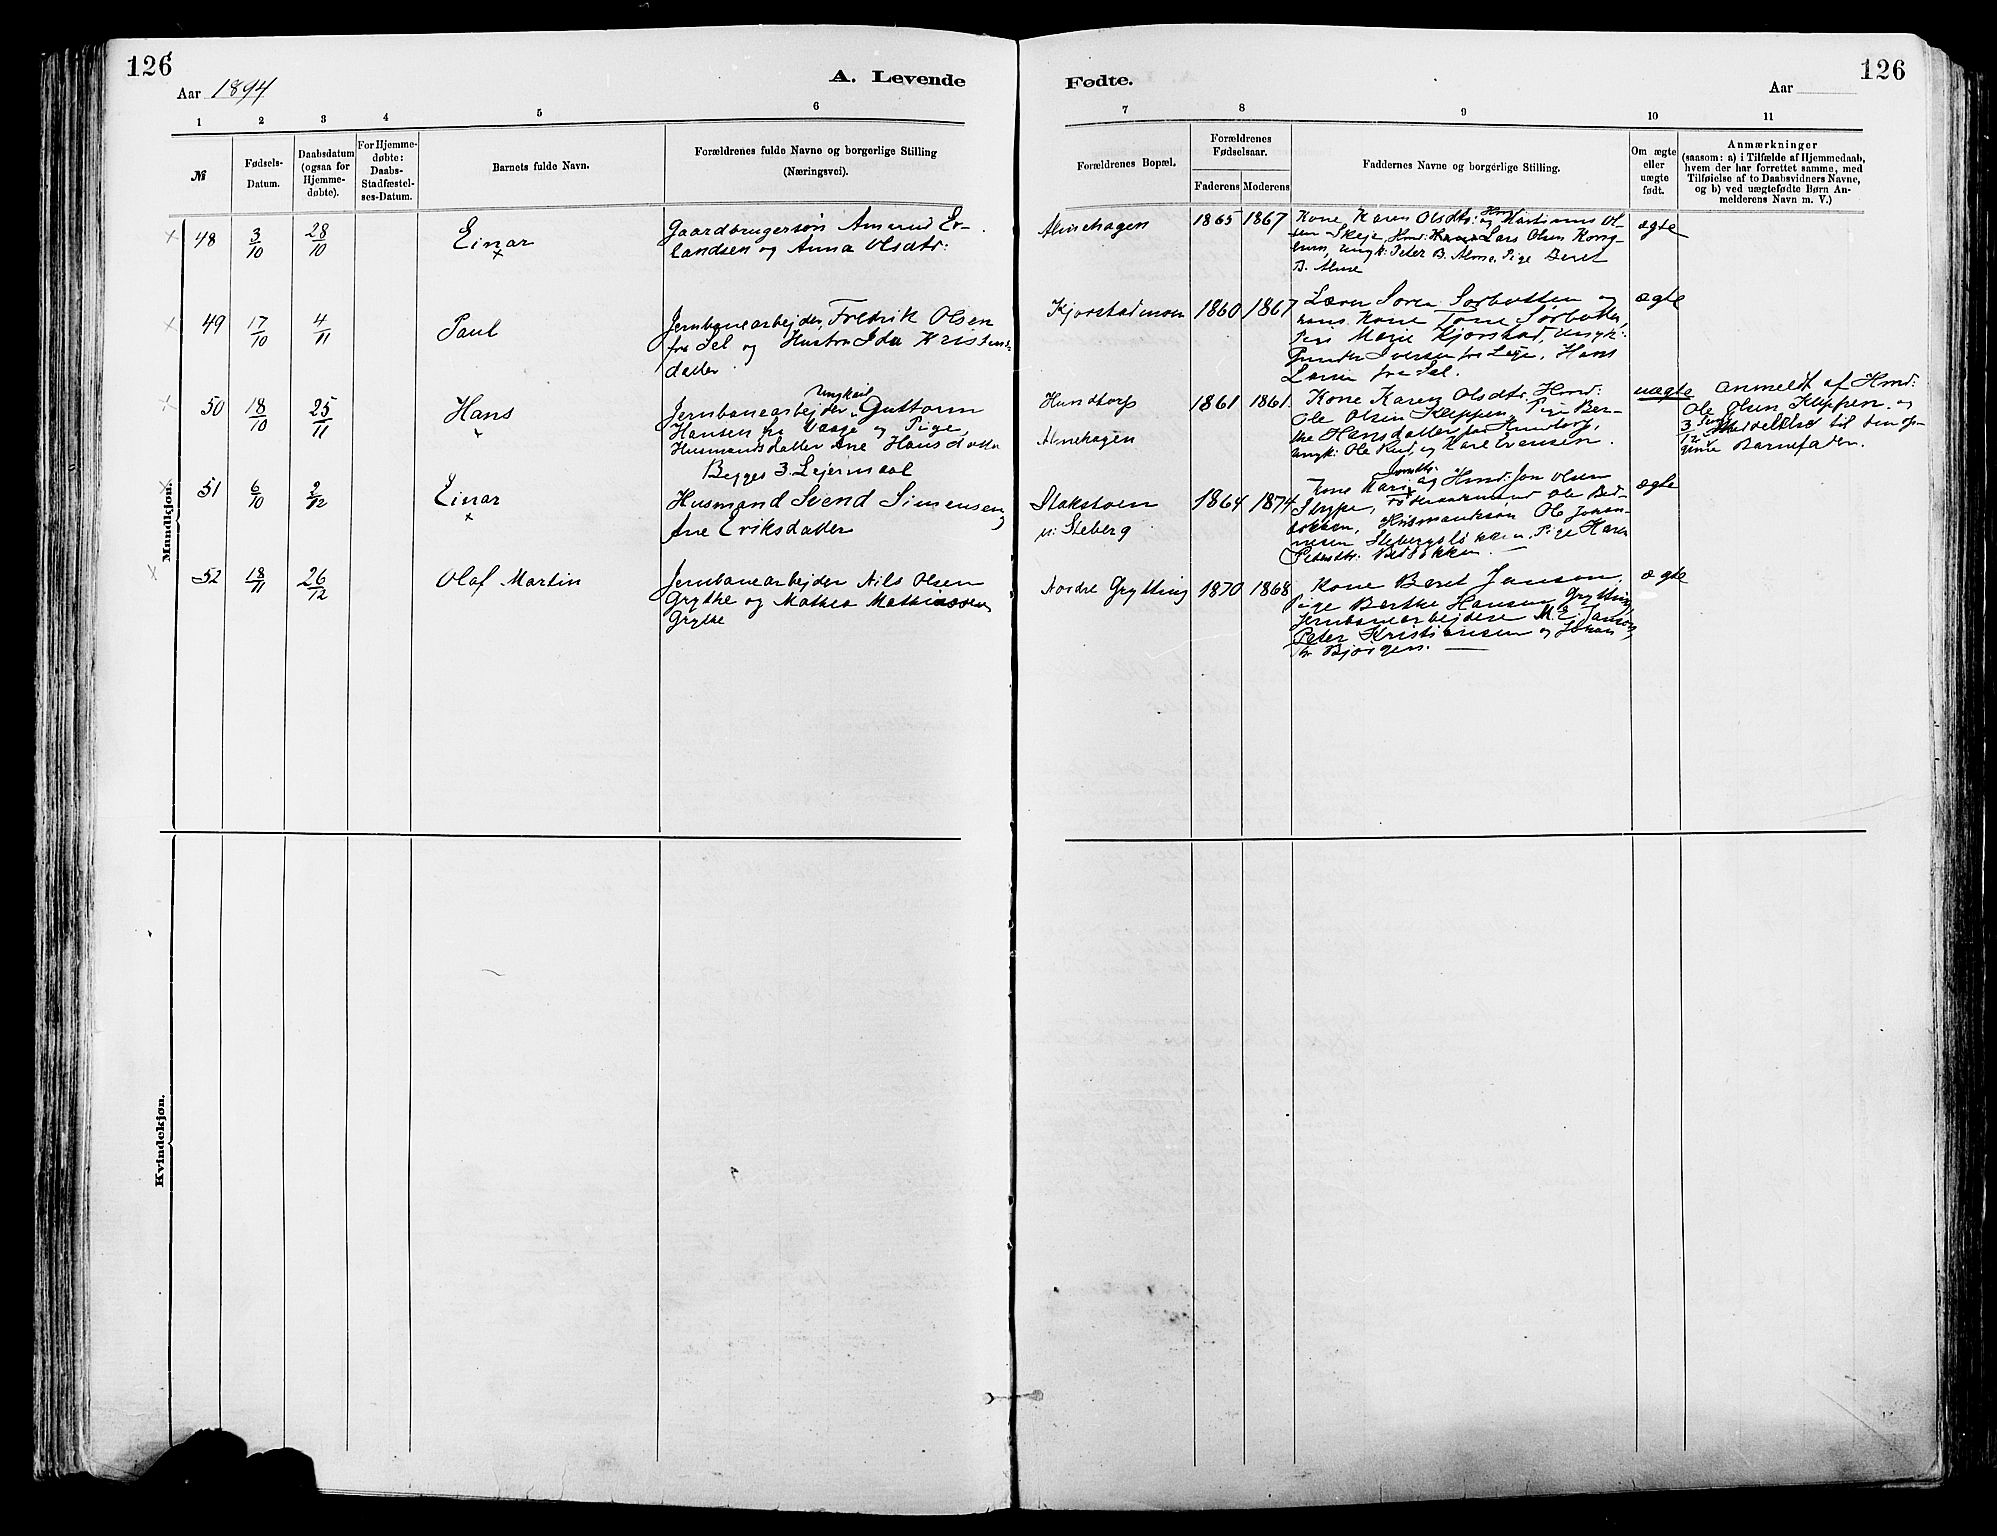 126
Aar 1894
A. Levende
1 2 3 4 5 6
№
Fødsels-
Datum.
Daabsdatum
(ogsaa for
Hjemme-
døbte).
For Hjemme-
døbte:
Daabs-
Stadfæstel-
ses-Datum.
Barnets fulde Navn.
Forældrenes fulde Navne og borgerlige Stilling
(Næringsvei).
Mandkjøn.
48 3/10 28/10 Einar
Gaardbrugersøn Amund Er-
landsen og Anna Olsdtr:
49 17/10 4/11 Paul
Jernbanearbejder, Fredrik Olsen
fra Sel og Hustru Ida Kristens-
datter.
50 18/10 25/11 Hans
Ungkarl
Jernbanearbejder, Guttorm
Hansen fra Vaage og Pige,
Husmandsdatter Ane Hansdatter
Begges 3. Lejermaal
51 6/10 2/12 Einar
Husmand Svend Simensen og
Ane Eriksdatter
52 18/11 26/12 Olaf Martin
Jernbanearbejder Nils Olsen
Grythe og Mathea Mathiassen
Grythe
Kvindekjøn.
Fødte.
126
Aar
7 8 9 10 11
Forældrenes Bopæl.
Forældrenes
Fødselsaar.
Faderens Moderens
Faddernes Navne og borgerlige Stilling.
Om ægte
eller
uægte
født.
Anmærkninger
(saasom: a) i Tilfælde af Hjemmedaab,
hvem der har forrettet samme, med
Tilføielse af to Daabsvidners Navne,
og b) ved uægtefødte Børn An-
melderens Navn m. V.)
Almehagen 1865 1867
Kone Karen Olsdtr: og Martinus Ol-
sen Skeje, Hmd: Lars Olsen Kong-
Ungk: Peter B. Alme, Pige Beret
B. Alme
ægte
Kjorstadmoen 1860 1867
Lærer Soren Sorbotten og
hans Kone Tone Sørbotten,
Pige Marie Kjorstad, Ungk:
Iversen fra Leje, Hans
Larsen fra Sel.
ægte
Hundtorp
Almehagen
1861 1861
Kone Karen Olsdtr, Hmd:
Ole Olsen Kleppen, Pige Ber-
the Hansdatter fra Hundtorp,
Ungk: Ole Rud, og Karl Evensen.
uægte
Anmeldt af Hmd:
Ole Olsen Kleppen. og
3/12 Meddelelse til den op-
givne Barnefader.
Stakstoen
u: Steberg
1864 1874
Jonsdtr:
Kone Kari og Hmd: Jon Olsen
Skyppe, Føderaadsmand Ole Bed-
døkken, Husmandssøn Ole Johan-
nesen Stebergsløkken, Pige Karen
Pedersdtr: Beddøkken.
ægte
Nordre Grytting 1870 1868
Kone Beret Janson,
Pige Berthe Hansen Grytting,
Jernbanearbejdere M. E. Janson,
Peter Kristiansen og Johan
Th Bjorgen.
ægte